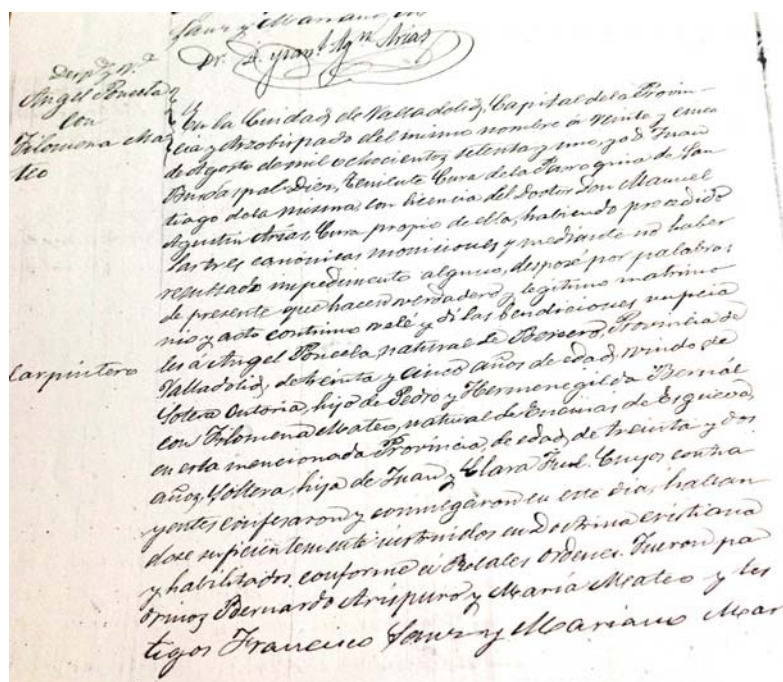 Sanz y Mariano
Dr. D. Man.l Ag.n Arias
Desp.s y v.s
Angel Poncela
con
Filomena Ma
teo
En la Ciudad de Valladolid, Capital de la Provin-
cia y Arzobispado del mismo nombre à veinte y cinco
de Agosto de mil ochocientos setenta y uno, yo D. Juan
Diez, Teniente Cura de la Parroquia de San
tiago de la misma, con licencia del Doctor Don Manuel
Agustin Arias, Cura propio de ella, habiendo precedido
las tres canónicas moniciones y mediante no haber
resultado impedimento alguno, desposé por palabras
de presente que hacen verdadero y legitimo matrimo
nio y acto continuo velé y dí las bendiciones nupcia
les á Angel Poncela, natural de Bercero, Provincia de
Carpintero
Valladolid, de treinta y cinco años de edad, viudo de
Sotera Ontoria, hijo de Pedro y Hermenegilda Bernál
con Filomena Mateo, natural de Encinas de Esgueva,
en esta mencionada Provincia, de edad de treinta y dos
años, Soltera, hija de Juan y Clara. Cuyos contra
yentes confesaron y comulgaron en este dia, hallan
dose suficientemente instruidos en Doctrina cristiana
y habilitados conforme á Reales ordenes. Fueron pa
drinos Bernardo y María Mateo y tes
tigos Francisco Sanz y Mariano Mar